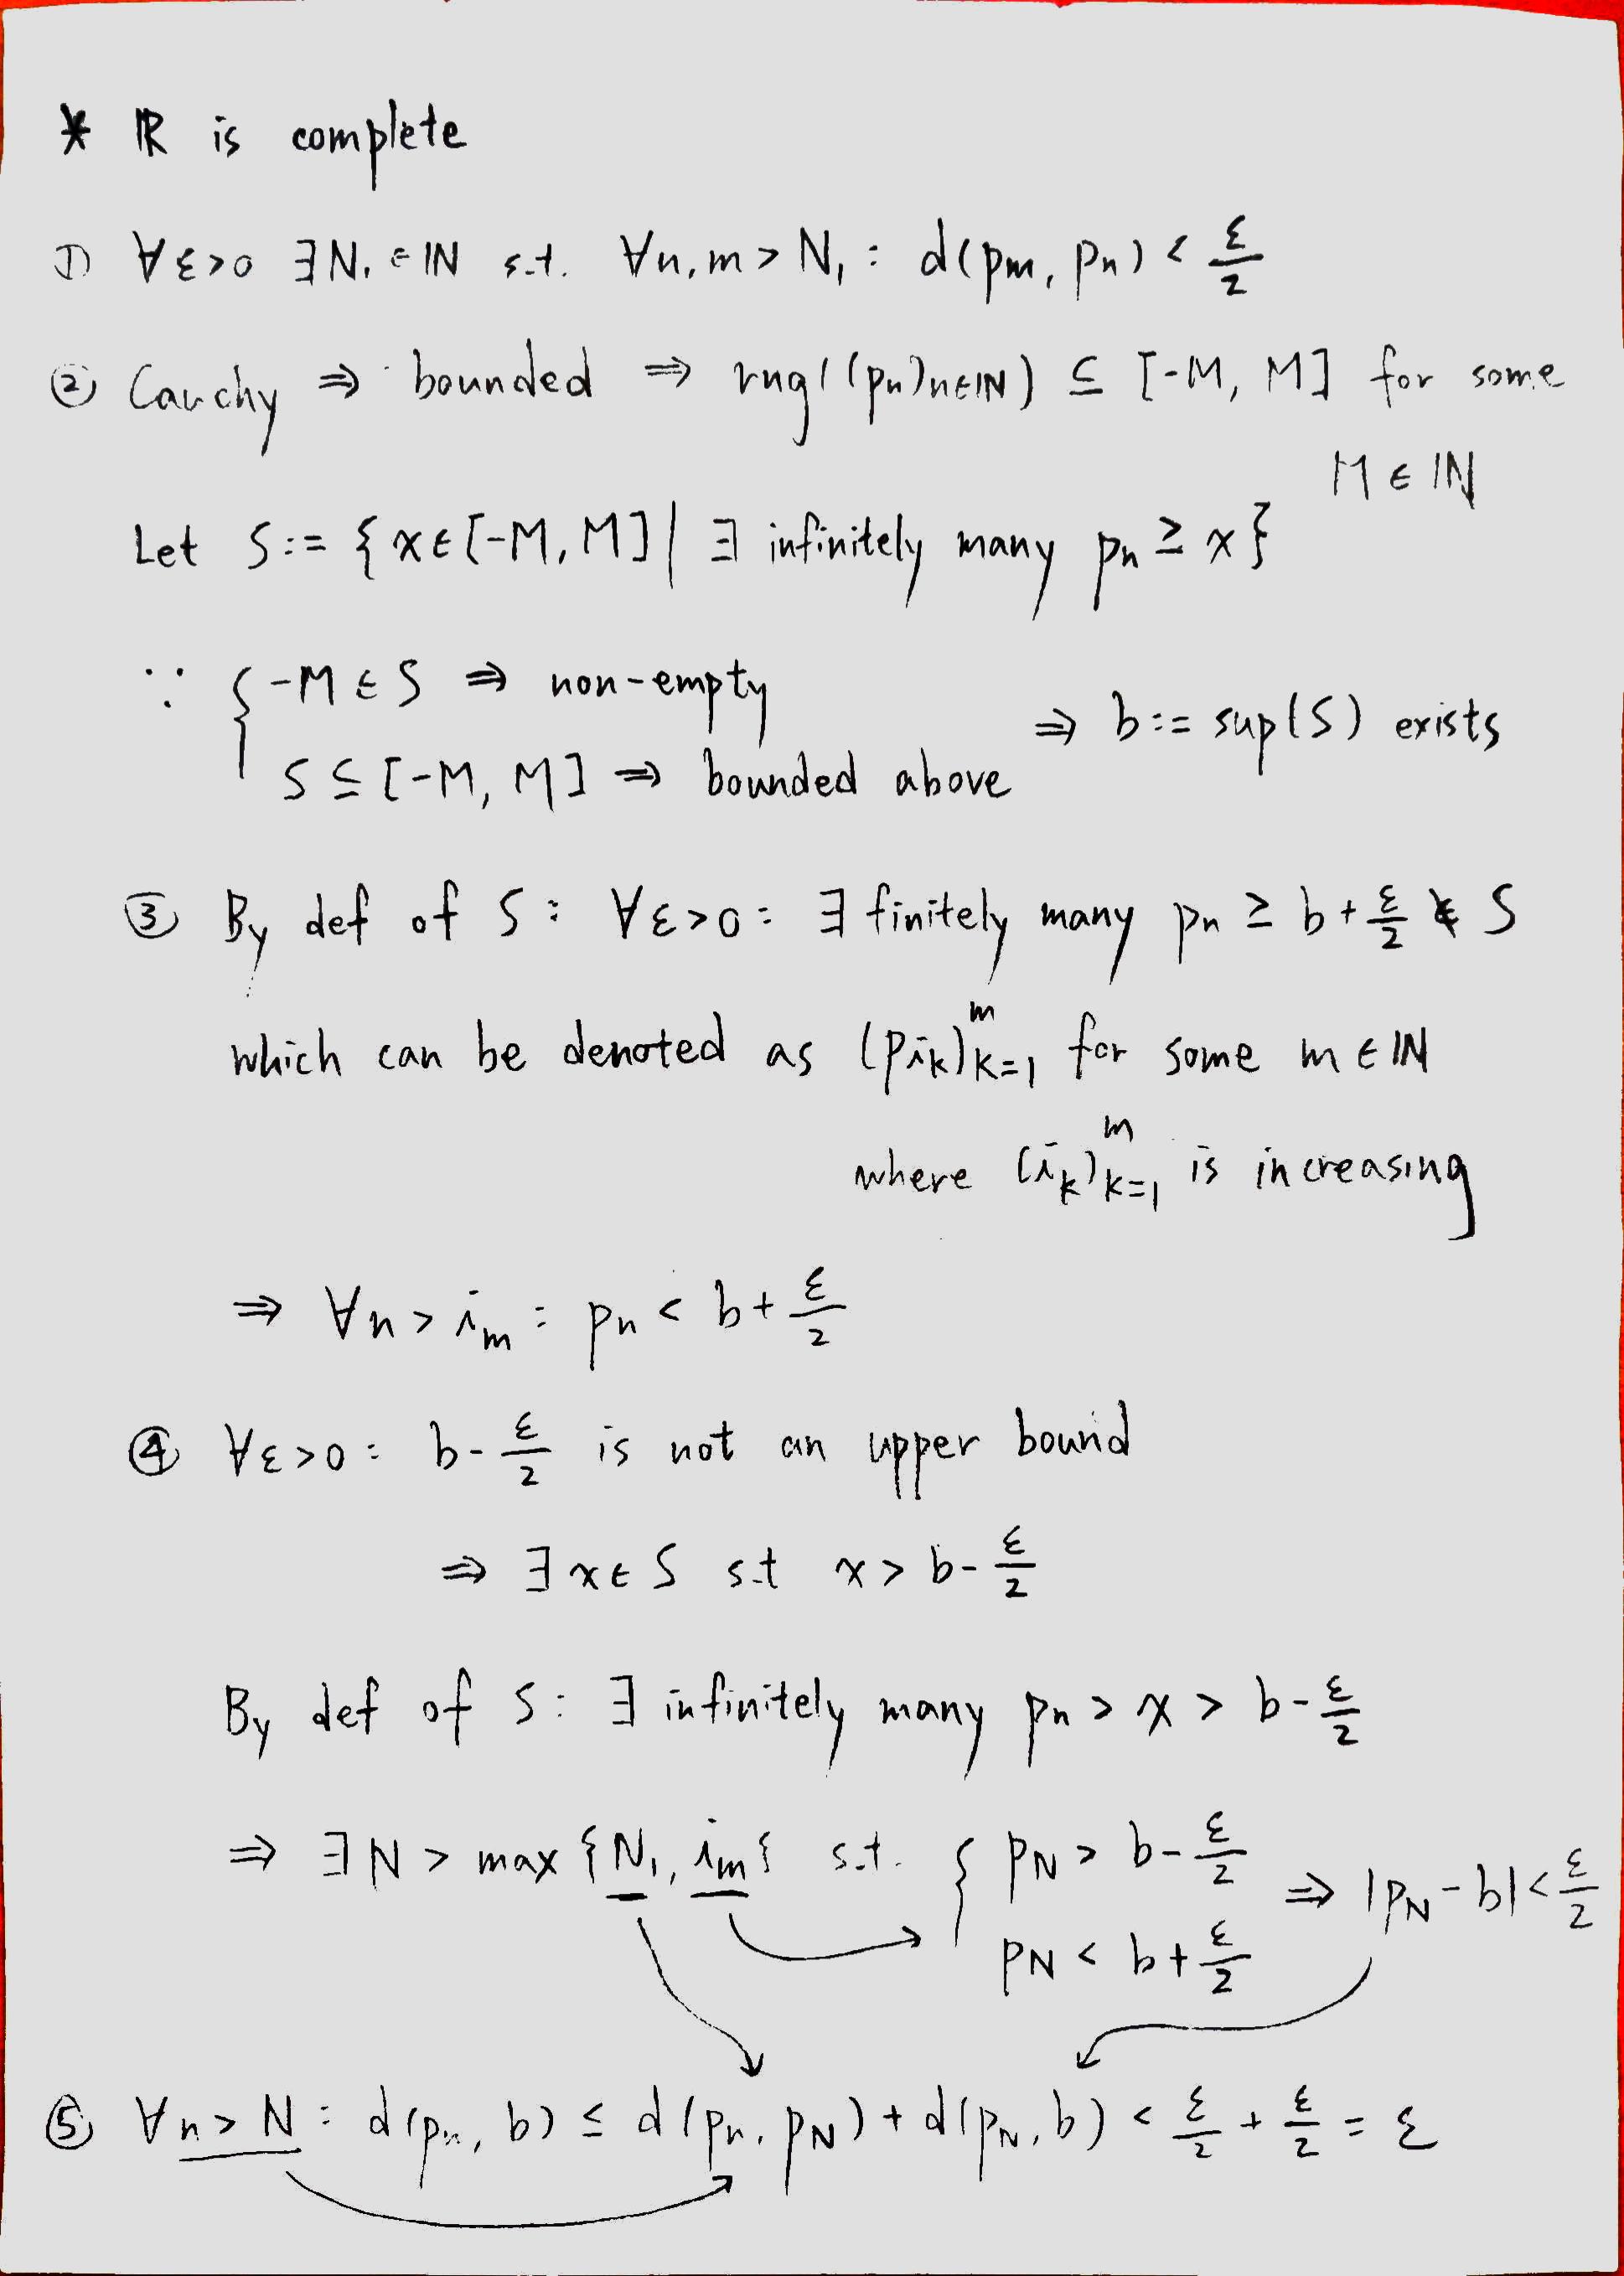 * ℝ is complete
① ∀ε>0 ∃N₁∈ℕ s.t. ∀n,m>N₁ : d(pm, pn) < ε/2
② Cauchy ⇒ bounded ⇒ rng((pn)n∈ℕ) ⊆ [-M, M] for some
M∈ℕ
Let S:= {x∈[-M,M] | ∃ infinitely many pn ≥ x}
∵ { -M∈S ⇒ non-empty
S⊆[-M, M] ⇒ bounded above
⇒ b:= sup(S) exists
③ By def of S: ∀ε>0: ∃ finitely many pn ≥ b+ε/2 ∉ S
which can be denoted as (p_{i_k})_{k=1}^m for some m∈ℕ
where (i_k)_{k=1}^m is increasing
⇒ ∀n>i_m : pn < b+ε/2
④ ∀ε>0: b-ε/2 is not an upper bound
⇒ ∃x∈S s.t x > b-ε/2
By def of S: ∃ infinitely many pn > x > b-ε/2
⇒ ∃N > max{N₁, i_m} s.t. { pN > b-ε/2
pN < b+ε/2
⇒ |pN-b|<ε/2
⑤ ∀n>N : d(pn, b) ≤ d(pn, pN) + d(pN, b) < ε/2 + ε/2 = ε